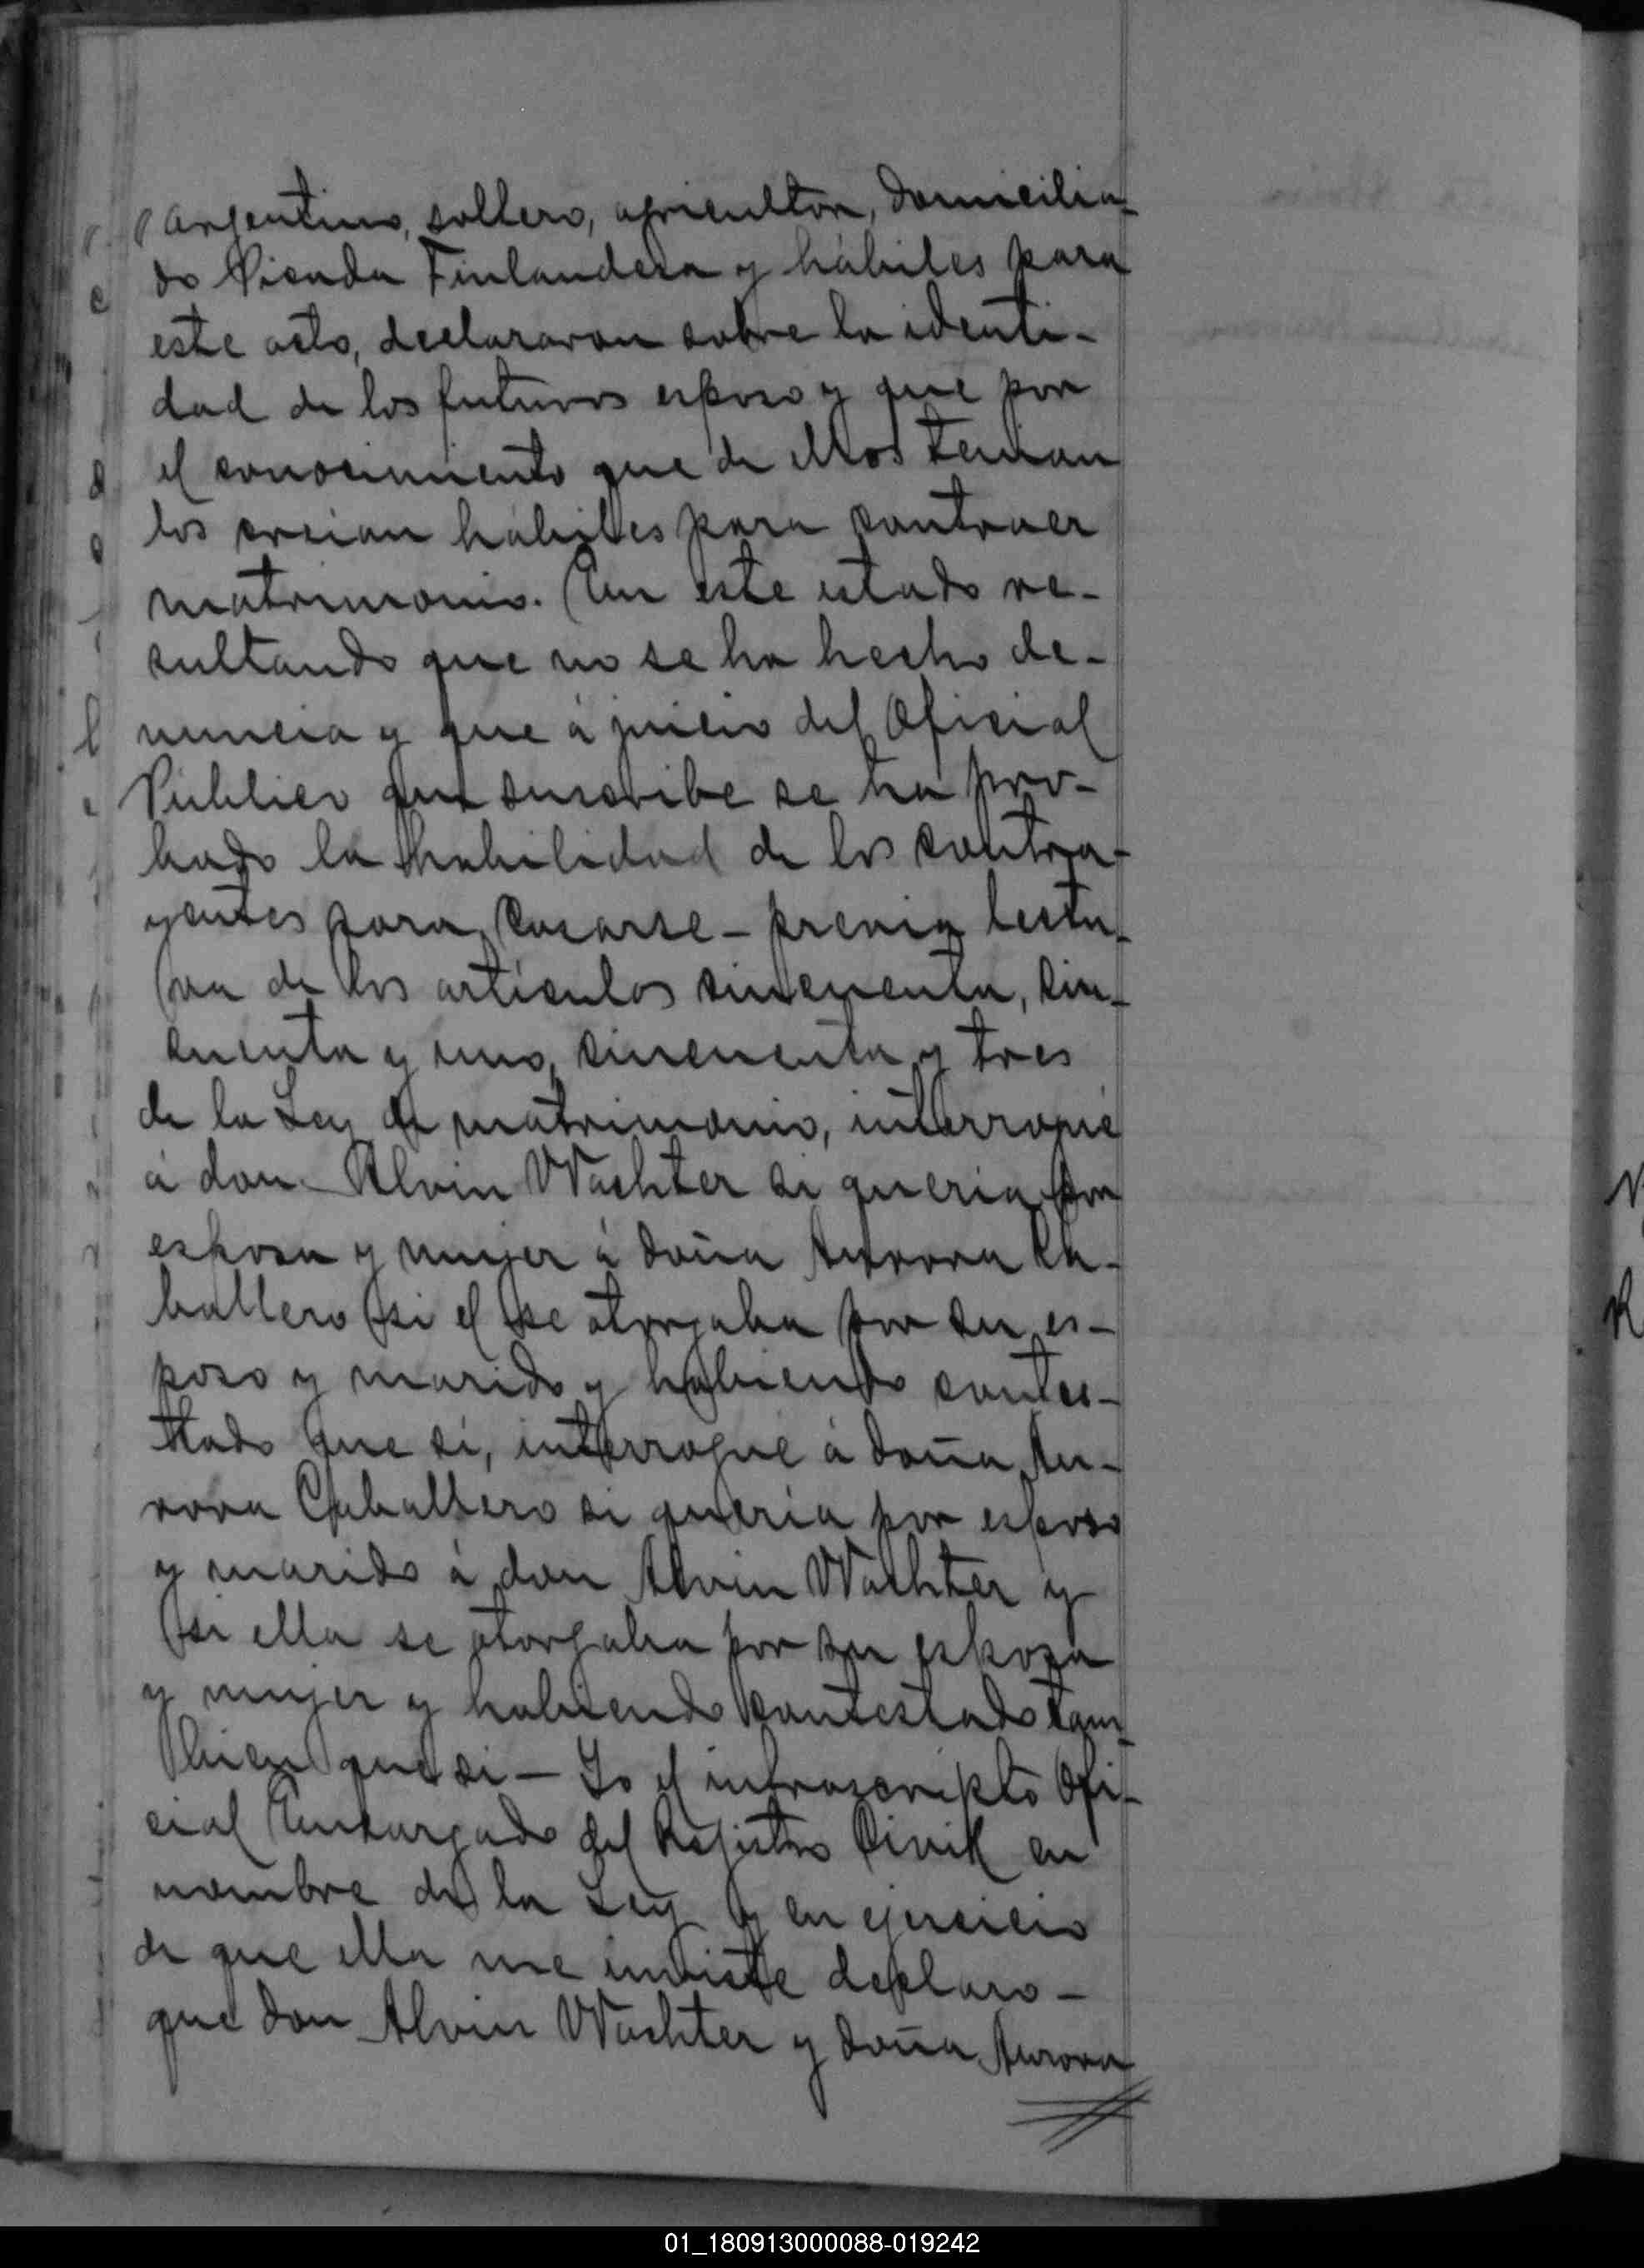 argentino, soltero, agricultor, domicilia-
do Picada Finlandesa y hábiles para
este acto, declararon sobre la identi-
dad de los futuros esposo y que por
el conocimiento que de ellos tenian
los creian hábiles para contraer
matrimonio. En este estado re-
sultando que no se ha hecho de-
nuncia y que á juicio del Oficial
Público que suscribe se ha pro-
bado la habilidad de los contra-
yentes para casarse - previa lectu-
ra de los artículos cincuenta, cin-
cuenta y uno, cincuenta y tres
de la Ley de matrimonio, interrogué
á don Alvin Wachter si queria por
esposa y mujer á doña Aurora Ca-
ballero si el se otorgaba por su es-
poso y marido y habiendo contes-
tado que si, interrogué á doña Au-
rora Caballero si queria por esposo
y marido á don Alvin Wachter y
si ella se otorgaba por su esposa
y mujer y habiendo contestado tam-
bien que si - Yo el infrascripto Ofi-
cial Encargado del Registro Civil en
nombre de la Ley y en ejercicio
de que ella me inviste declaro -
que don Alvin Wachter y doña Aurora
01_180913000088-019242